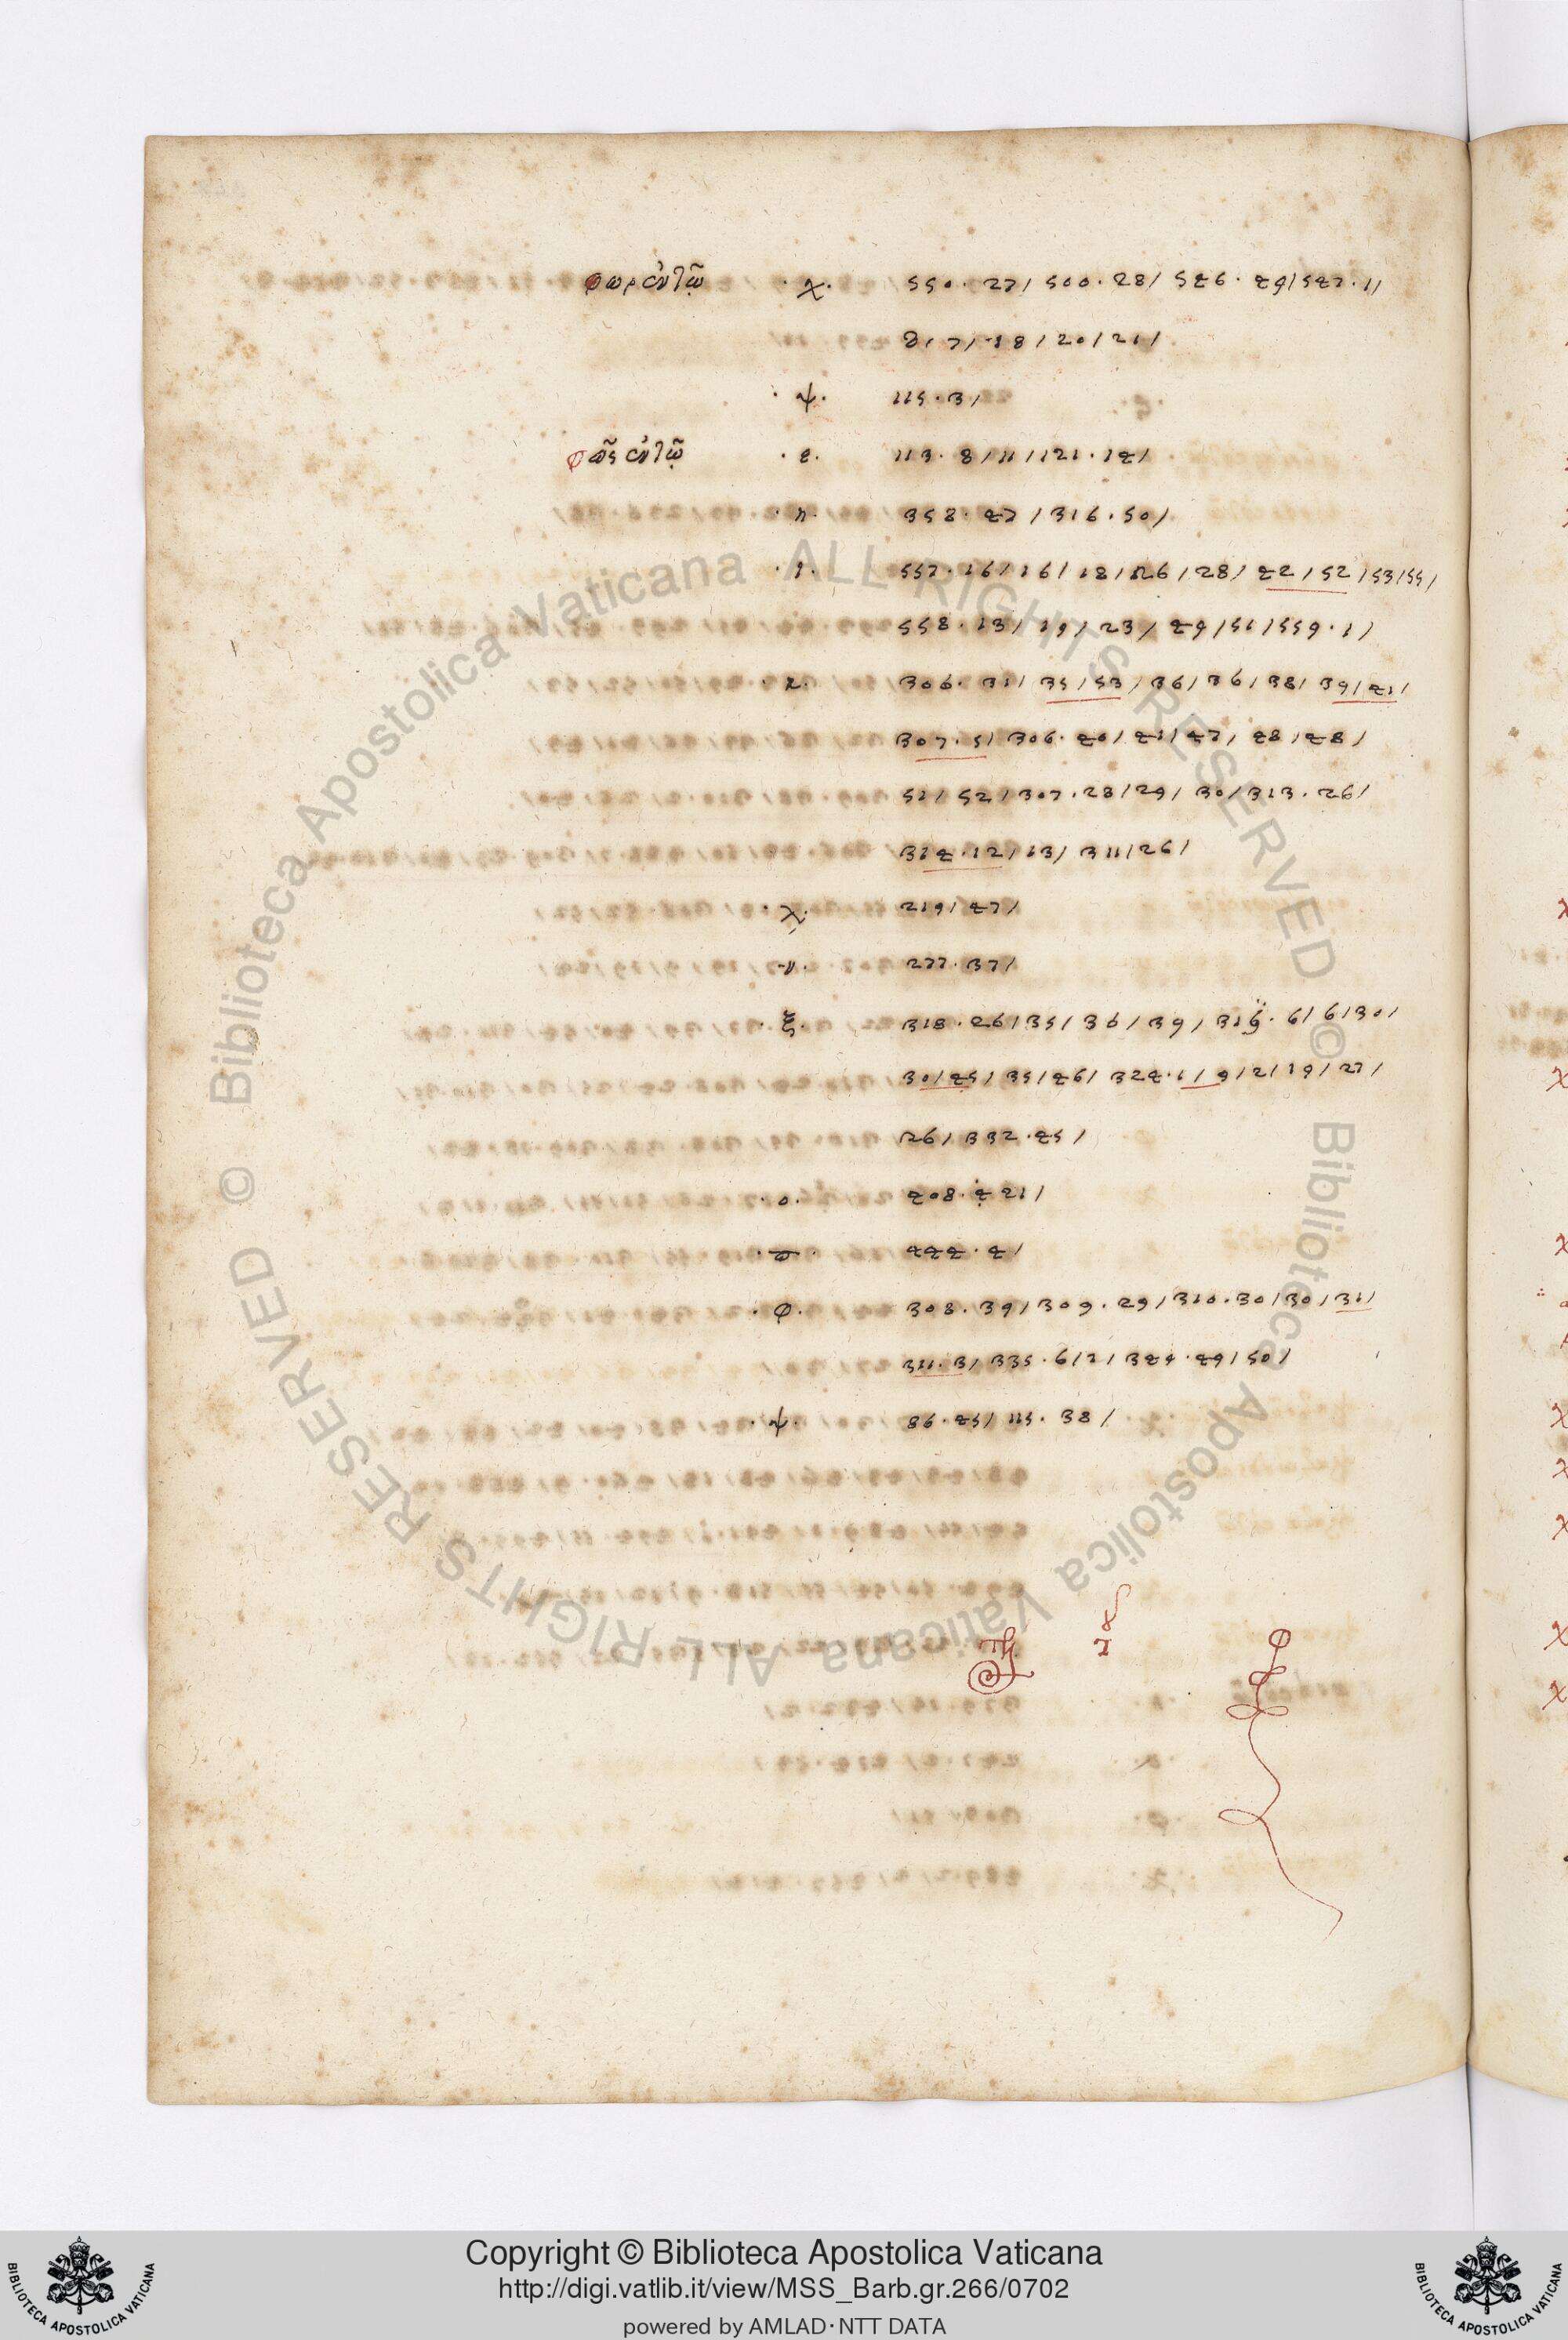 φωρ ἐν τῷ · χ · 550 · 27 / 500 · 28 / 546 · 49 / 547 · 1 /
8 / 7 / 18 / 20 / 21 /
· ψ · 115 · 3 /
φῶς ἐν τῷ · ε · 113 · 8 / 11 / 121 · 14 /
· η · 358 · 47 / 316 · 50 /
· ι · 557 · 16 / 16 / 18 / 26 / 28 / 42 / 52 / 53 / 55 /
558 · 13 / 19 / 23 / 49 / 51 / 559 · 1 /
· κ · 306 · 31 / 35 / 53 / 36 / 36 / 38 / 39 / 41 /
307 · 5 / 306 · 40 / 41 / 47 / 48 / 48 /
51 / 52 / 307 · 28 / 29 / 30 / 313 · 26 /
314 · 12 / 13 / 311 / 26 /
· λ · 219 / 47 /
· ν · 277 · 37 /
· ξ · 318 · 26 / 35 / 36 / 39 / 319 · 6 / 6 / 30 /
30 / 45 / 35 / 46 / 324 · 1 / 9 / 2 / 19 / 27 /
26 / 332 · 45 /
· ο · 408 · 4 21 /
444 · 4 /
· φ · 308 · 39 / 309 · 29 / 310 · 30 / 30 / 31 /
311 · 3 / 335 · 6 / 2 / 344 · 49 / 50 /
· ψ · 86 · 45 / 115 · 38 /
© Biblioteca Apostolica Vaticana ALL RIGHTS RESERVED
© Biblioteca Apostolica Vaticana ALL RIGHTS RESERVED
BIBLIOTECA APOSTOLICA VATICANA
Copyright © Biblioteca Apostolica Vaticana
http://digi.vatlib.it/view/MSS_Barb.gr.266/0702
powered by AMLAD·NTT DATA
BIBLIOTECA APOSTOLICA VATICANA